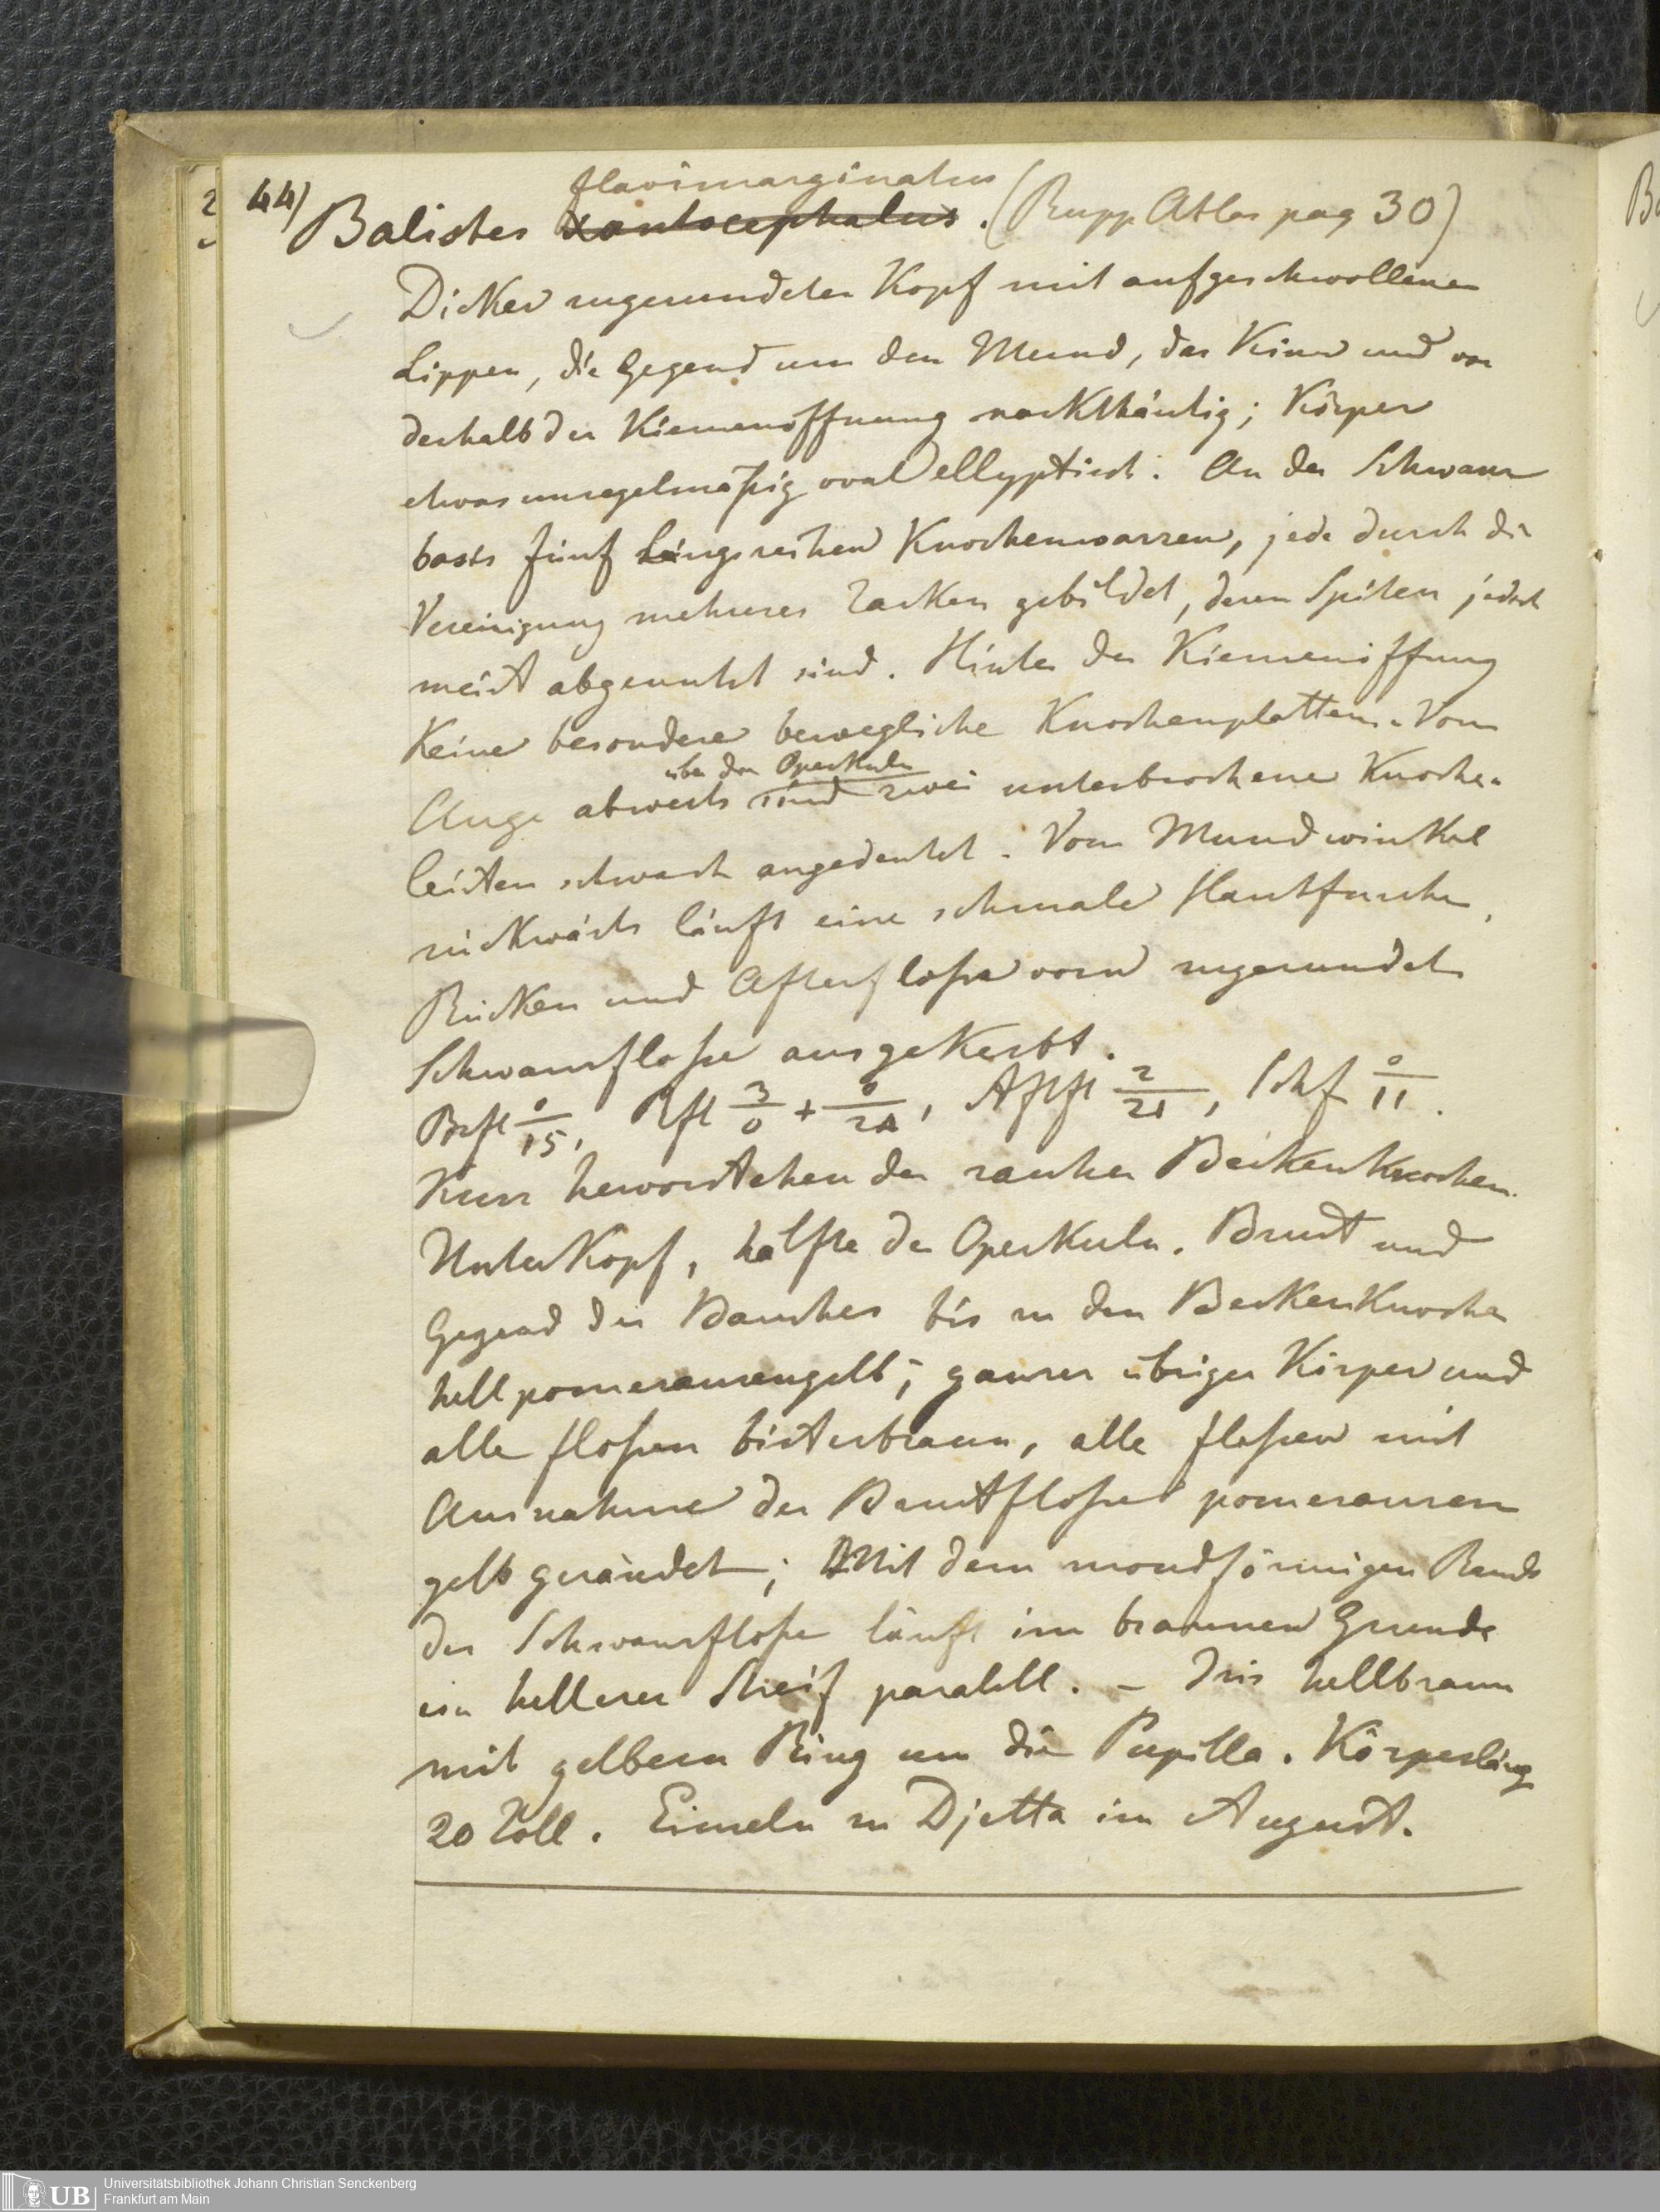 44)
flavimarginatus
Balistes xantocephalus. (Rupp Atlas pag 30)
Dicker zugerundeter Kopf mit aufgeschwollenen
Lippen, die Gegend um den Mund, das Kinn und vor
derhalb der Kiemenöffnung nackthäutig; Körper
etwas unregelmäßig oval ellyptisch. An der Schwanz
basis fünf Längsreihen Knochenwarzen, jede durch die
Vereinigung mehrerer Zacken gebildet, deren Spitzen jedoch
meist abgenutzt sind. Hinter der Kiemenöffnung
Keine besondere bewegliche Knochenplatten. Vom
über den Operkuln
Auge abwerts sind zwei unterbrochene Knochen
leisten schwach angedeutet. Vom Mundwinkel
rückwärts läuft eine schmale Hautfurche,
Rücken und Afterfloße vorn zugerundet
Schwanzfloße ausgekerbt.
Brfl 0/15, Rfl 3/0 + 0/24, Aftfl 2/21, Schf 0/11.
Kurz hervorstehender rauher Beckenknochen.
Unterkopf, hälfte der Operkuln, Brust und
Gegend des Bauches bis zu den Beckenknochen
hell pomeranzengelb; ganzer übriger Körper und
alle floßen bisterbraun, alle floßen mit
Ausnahme der Brustfloßen pomeranzen
gelb gerändet; Mit dem mondförmigen Rande
der Schwanzfloße läuft im braunen Grunde
ein hellerer Streif paralell. – Iris hellbraun
mit gelbem Ring um die Pupilla. Körperläng
20 Zoll. Einzeln zu Djetta im August.
Universitätsbibliothek Johann Christian Senckenberg
UB Frankfurt am Main